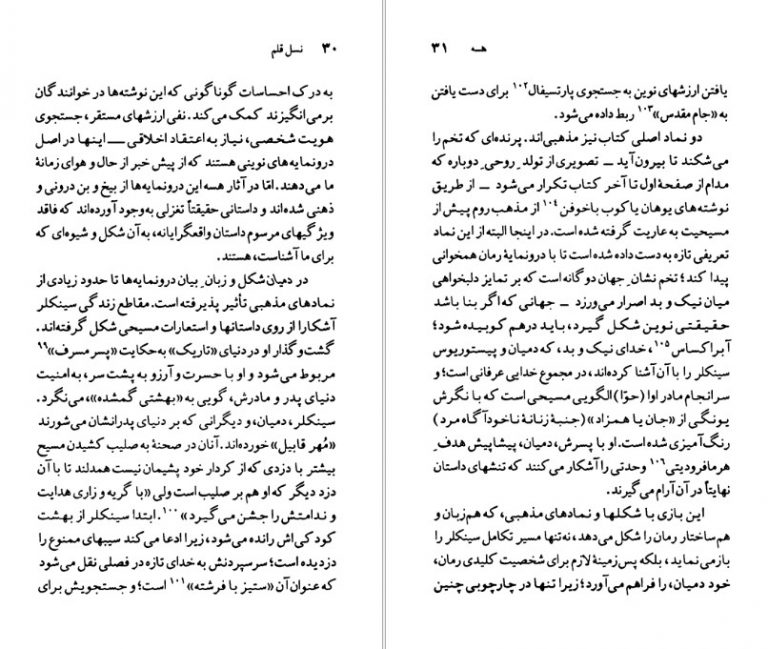 ۳۰ نسل قلم
به درک احساسات گوناگونی که این نوشته‌ها در خوانندگان
برمی‌انگیزند کمک می‌کند. نفی ارزشهای مستقر، جستجوی
هویت شخصی، نیاز به اعتقاد اخلاقی ــ اینها در اصل
درونمایه‌های نوینی هستند که از پیش خبر از حال و هوای زمانهٔ
ما می‌دهند. اما در آثار هسه این درونمایه‌ها از بیخ و بن درونی و
ذهنی شده‌اند و داستانی حقیقتاً تغزلی به‌وجود آورده‌اند که فاقد
ویژگیهای مرسوم داستان واقعگرایانه، به‌آن شکل و شیوه‌ای که
برای ما آشناست، هستند.
در دمیان شکل و زبانِ بیان درونمایه‌ها تا حدود زیادی از
نمادهای مذهبی تأثیر پذیرفته است. مقاطع زندگی سینکلر
آشکارا از روی داستانها و استعارات مسیحی شکل گرفته‌اند.
گشت‌وگذار او در دنیای «تاریک» به‌حکایت «پسر مسرف»۹۹
مربوط می‌شود و او با حسرت و آرزو به پشت سر، به‌امنیت
دنیای پدر و مادرش، گویی به «بهشتی گمشده»، می‌نگرد.
سینکلر، دمیان، و دیگرانی که بر دنیای پدرانشان می‌شورند
«مُهر قابیل» خورده‌اند. آنان در صحنهٔ به صلیب کشیدن مسیح
بیشتر با دزدی که از کردار خود پشیمان نیست همدلند تا با آن
دزد دیگر که او هم بر صلیب است ولی «با گریه و زاری هدایت
و ندامتش را جشن می‌گیرد»۱۰۰. ابتدا سینکلر از بهشت
کودکی‌اش رانده می‌شود، زیرا ادعا می‌کند سیبهای ممنوع را
دزدیده است؛ سرسپردنش به خدای تازه در فصلی نقل می‌شود
که عنوان آن «ستیز با فرشته»۱۰۱ است؛ و جستجویش برای
هسه ۳۱
یافتن ارزشهای نوین به جستجوی پارتسیفال۱۰۲ برای دست یافتن
به «جام مقدس»۱۰۳ ربط داده می‌شود.
دو نماد اصلی کتاب نیز مذهبی‌اند. پرنده‌ای که تخم را
می‌شکند تا بیرون‌آید ــ تصویری از تولدِ روحیِ دوباره که
مدام از صفحهٔ اول تا آخر کتاب تکرار می‌شود ــ از طریق
نوشته‌های یوهان یاکوب باخوفن۱۰۴ از مذهب روم پیش از
مسیحیت به عاریت گرفته شده است. در اینجا البته از این نماد
تعریفی تازه به دست داده شده است تا با درونمایهٔ رمان همخوانی
پیدا کند؛ تخم نشانِ جهان دوگانه است که بر تمایز دلبخواهی
میان نیک و بد اصرار می‌ورزد ــ جهانی که اگر بنا باشد
حقیقتی نوین شکل گیرد، باید درهم کوبیده شود؛
آبراکساس۱۰۵، خدای نیک و بد، که دمیان و پیستوریوس
سینکلر را با آن آشنا کرده‌اند، در مجموع خدایی عرفانی است؛ و
سرانجام مادر اوا (حوّا) الگویی مسیحی است که با نگرش
یونگی از «جان یا همزاد» (جنبهٔ زنانهٔ ناخودآگاه مرد)
رنگ‌آمیزی شده است. او با پسرش، دمیان، پیشاپیش هدفِ
هرمافرودیتی۱۰۶ وحدتی را آشکار می‌کنند که تنشهای داستان
نهایتاً در آن آرام می‌گیرند.
این بازی با شکلها و نمادهای مذهبی، که هم‌زبان و
هم‌ساختار رمان را شکل می‌دهد، نه‌تنها مسیر تکامل سینکلر را
بازمی‌نماید، بلکه پس‌زمینهٔ لازم برای شخصیت کلیدی رمان،
خود دمیان، را فراهم می‌آورد؛ زیرا تنها در چارچوبی چنین